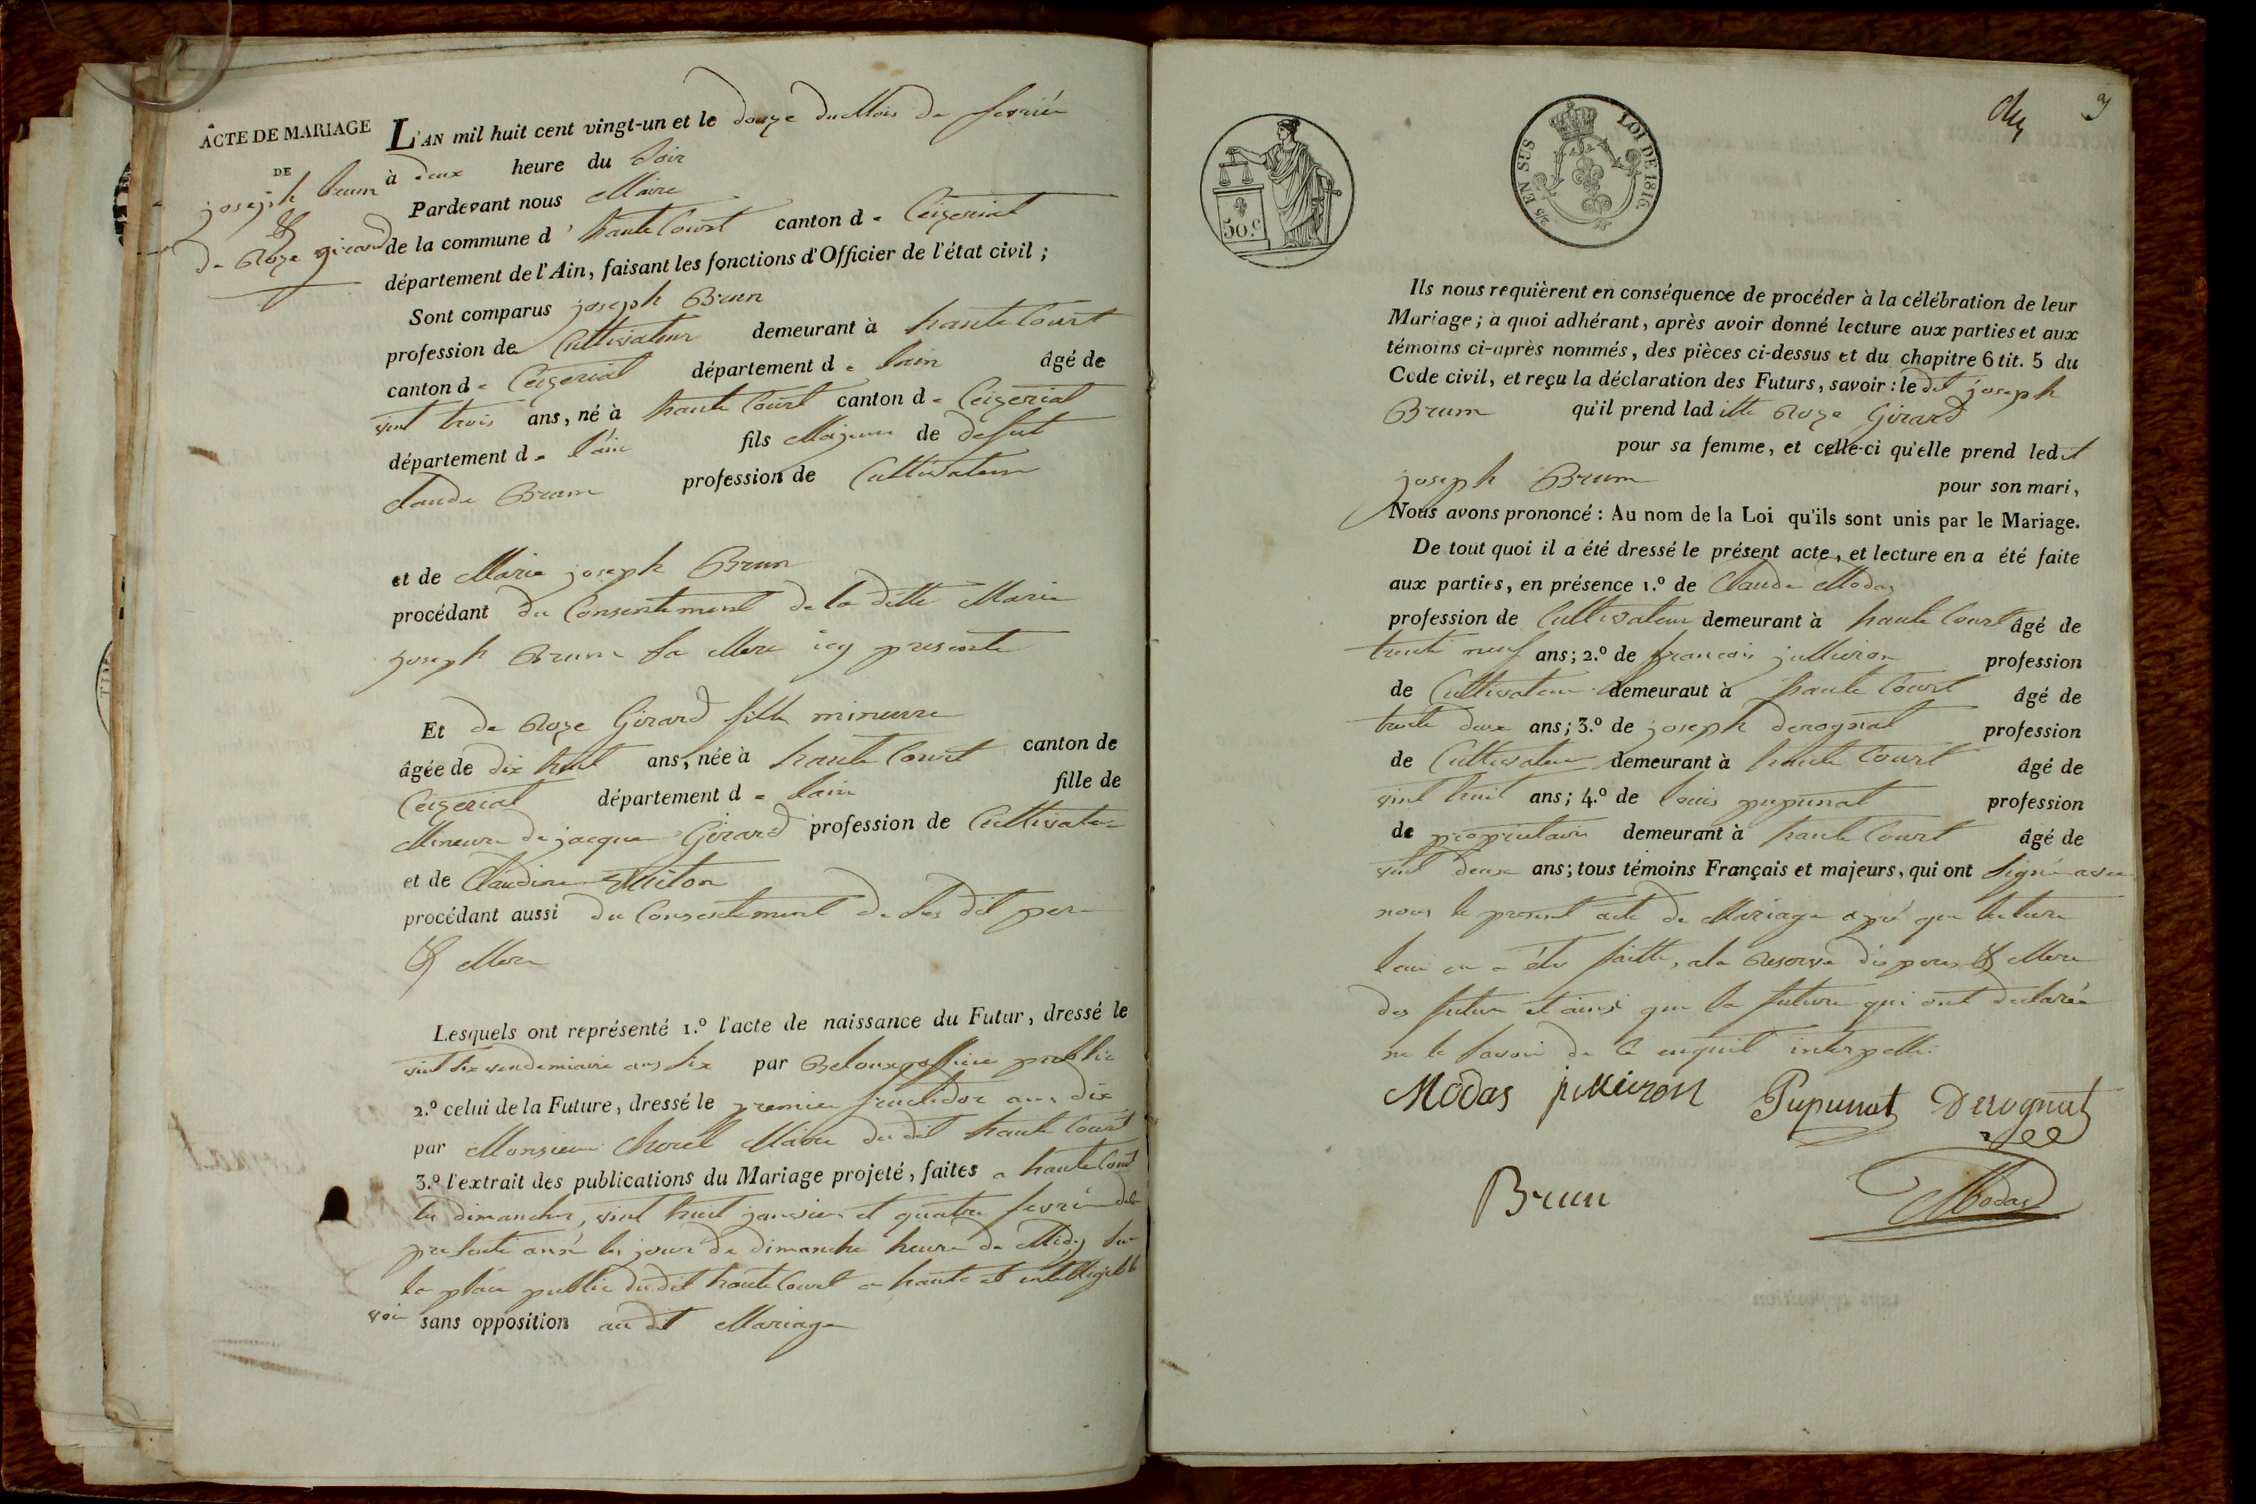 ACTE DE MARIAGE
DE
joseph brun
&
de Roze girard
L'AN mil huit cent vingt-un et le douze du Mois de fevrier
à deux heure du Soir
Pardevant nous Maire
de la commune d'haute Court canton de Ceizeriat
département de l'Ain, faisant les fonctions d'Officier de l'état civil ;
Sont comparus joseph Brun
profession de Cultivateur demeurant à haute Court
canton de Ceizeriat département de lain âgé de
vint trois ans, né à haute Court canton de Ceizeriat
département de l'ain fils Majeur de defunt
claude Brun profession de Cultivateur
et de Marie joseph Brun
procédant du Consentement de la ditte Marie
joseph Brun Sa Mere icy presente
Et de Roze Girard fille mineure
âgée de dix huit ans, née à haute Court canton de
Ceizeriat département de lain fille de
Mineure de jacque Girard profession de Cultivateur
et de Claudine
procédant aussi du Consentement de Ses dit pere
& Mere
Lesquels ont représenté 1.º l'acte de naissance du Futur, dressé le
vint six vendemiaire ans six par Belouze officier public
2.º celui de la Future, dressé le premier fructidor ans dix
par Monsieur Morel Maire du dit haute Court
3.º l'extrait des publications du Mariage projeté, faites a haute Court
les dimanches, vint huit janvier et quatre fevrier de
presente année les jour de dimanche heure de Midy Sur
la place public dudit haute Court a haute et intelligible
voie sans opposition au dit Mariage
50.C
2/5 EN SUS
LOI DE 1816.
3
Ils nous requièrent en conséquence de procéder à la célébration de leur
Mariage ; à quoi adhérant, après avoir donné lecture aux parties et aux
témoins ci-après nommés, des pièces ci-dessus et du chapitre 6 tit. 5 du
Code civil, et reçu la déclaration des Futurs, savoir : le dit joseph
Brun qu'il prend laditte Roze Girard
pour sa femme, et celle-ci qu'elle prend ledit
joseph Brun pour son mari,
Nous avons prononcé : Au nom de la Loi qu'ils sont unis par le Mariage.
De tout quoi il a été dressé le présent acte, et lecture en a été faite
aux parties, en présence 1.º de Claude Modas
profession de Cultivateur demeurant à haute Court âgé de
trente neuf ans ; 2.º de francois jullieron profession
de Cultivateur demeuraut à haute Court âgé de
trente deux ans ; 3.º de joseph derognat profession
de Cultivateur demeurant à haute Court âgé de
vint huit ans ; 4.º de louis pupunat profession
de propriutaire demeurant à haute Court âgé de
vint deux ans ; tous témoins Français et majeurs, qui ont Signé avec
nous le present acte de Mariage apré que lecture
leur en a été faitte, ala Reserve des peres & Mere
des future et ainsi que la future qui ont declarée
ne le Savoir de ce enquit interpellé
Modas jullieron Pupunat Derognat
Brun Modas